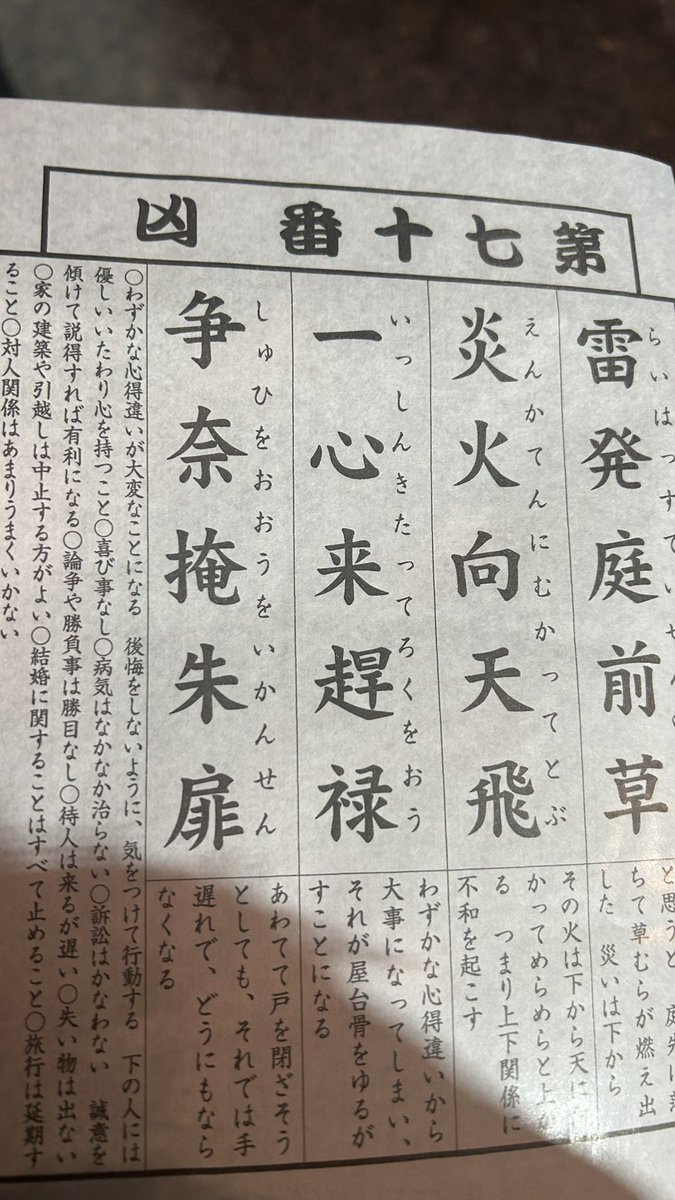 第七十番 凶
雷発庭前草
らいはっす
炎火向天飛
えんかてんにむかってとぶ
一心来趕禄
いっしんきたってろくをおう
争奈掩朱扉
しゅひをおおうをいかんせん
と思うと
ちて草むらが燃え出
した 災いは下から
その火は下から天に
かってめらめらと上
る つまり上下関係に
不和を起こす
わずかな心得違いから
大事になってしまい、
それが屋台骨をゆるが
すことになる
あわてて戸を閉ざそう
としても、それでは手
遅れで、どうにもなら
なくなる
○わずかな心得違いが大変なことになる 後悔をしないように、気をつけて行動する 下の人には
優しいいたわり心を持つこと○喜び事なし○病気はなかなか治らない○訴訟はかなわない 誠意を
傾けて説得すれば有利になる○論争や勝負事は勝目なし○待人は来るが遅い○失い物は出ない
○家の建築や引越しは中止する方がよい○結婚に関することはすべて止めること○旅行は延期す
ること○対人関係はあまりうまくいかない